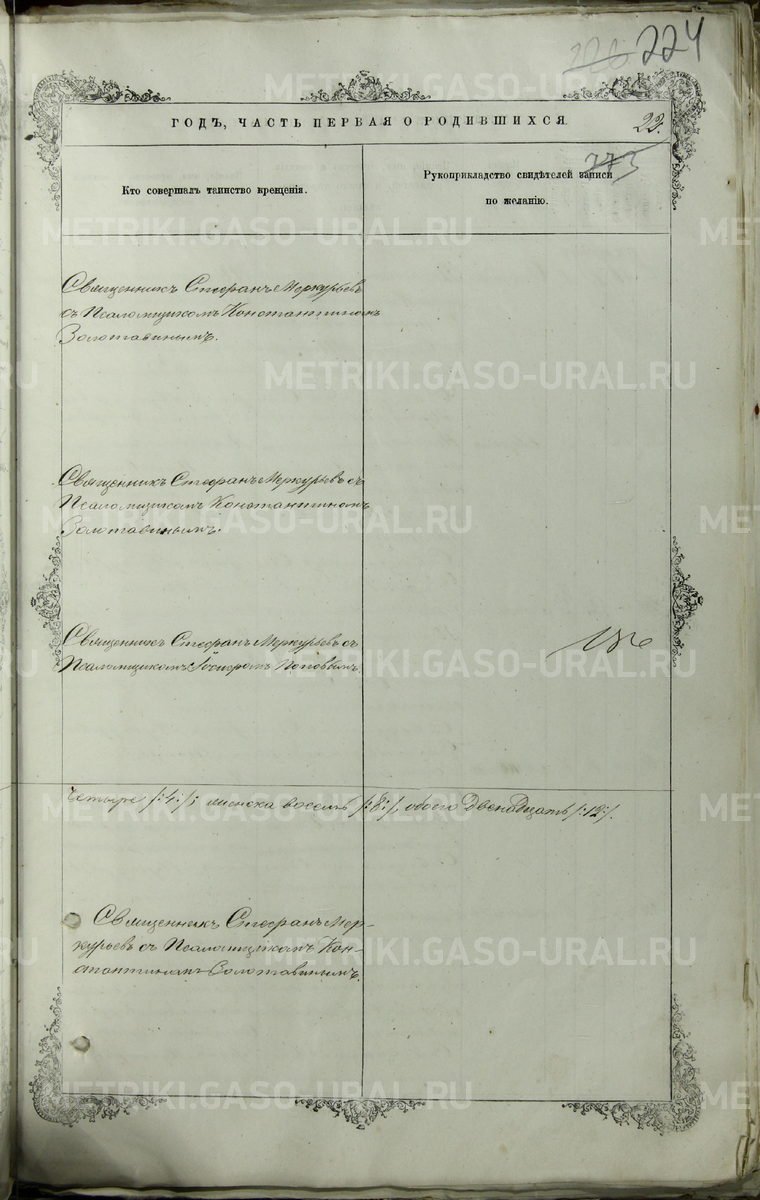 224
ГОДЪ, ЧАСТЬ ПЕРВАЯ О РОДИВШИХСЯ.
23.
373
Кто совершалъ таинство крещенія.
Рукоприкладство свидѣтелей записи
по желанію.
Священникъ Стефанъ Меркурьевъ
съ Псаломщикомъ Константиномъ
Золотавинымъ.
Священникъ Стефанъ Меркурьевъ съ
Псаломщикомъ Константиномъ
Золотавинымъ.
Священникъ Стефанъ Меркурьевъ съ
Псаломщикомъ Поповымъ.
Четыре /:4:/, женска восемь /:8:/, обоего двенадцать /:12:/.
Священникъ Стефанъ Мер-
курьевъ съ Псаломщикомъ Кон-
стантиномъ Золотавинымъ.
METRIKI.GASO-URAL.RU